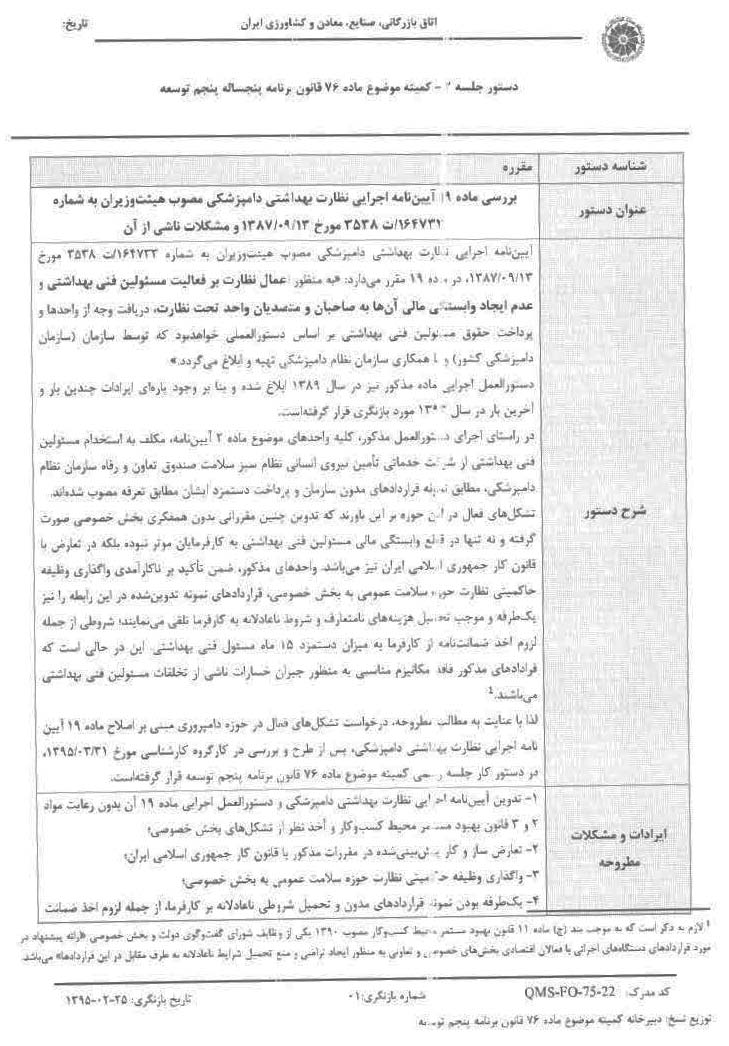 اتاق بازرگانی، صنایع، معادن و کشاورزی ایران
تاریخ:
دستور جلسه - کمیته موضوع ماده ۷۶ قانون برنامه پنجساله پنجم توسعه
شناسه دستور
مقرره
عنوان دستور
بررسی ماده ۱۹ آیین‌نامه اجرایی نظارت بهداشتی دامپزشکی مصوب هیئت‌وزیران به شماره
/ت ۳۵۳۸ مورخ ۱۳۸۷/۰۹/۱۳ و مشکلات ناشی از آن
شرح دستور
آیین‌نامه اجرایی نظارت بهداشتی دامپزشکی مصوب هیئت‌وزیران به شماره ۱۶۴۷۳۳/ت ۳۵۳۸ مورخ
۱۳۸۷/۰۹/۱۳، در ماده ۱۹ مقرر می‌دارد: «به منظور اعمال نظارت بر فعالیت مسئولین فنی بهداشتی و
عدم ایجاد وابستگی مالی آن‌ها به صاحبان و متصدیان واحد تحت نظارت، دریافت وجه از واحدها و
پرداخت حقوق مسئولین فنی بهداشتی بر اساس دستورالعملی خواهدبود که توسط سازمان (سازمان
دامپزشکی کشور) و با همکاری سازمان نظام دامپزشکی تهیه و ابلاغ می‌گردد.»
دستورالعمل اجرایی ماده مذکور نیز در سال ۱۳۸۹ ابلاغ شده و بنا بر وجود پاره‌ای ایرادات چندین بار و
آخرین بار در سال مورد بازنگری قرار گرفته‌است.
در راستای اجرای دستورالعمل مذکور، کلیه واحدهای موضوع ماده ۲ آیین‌نامه، مکلف به استخدام مسئولین
فنی بهداشتی از شرکت خدماتی تأمین نیروی انسانی نظام سبز سلامت صندوق تعاون و رفاه سازمان نظام
دامپزشکی، مطابق نمونه قراردادهای مدون سازمان و پرداخت دستمزد ایشان مطابق تعرفه مصوب شده‌اند.
تشکل‌های فعال در این حوزه بر این باورند که تدوین چنین مقرراتی بدون همفکری بخش خصوصی صورت
گرفته و نه تنها در قطع وابستگی مالی مسئولین فنی بهداشتی به کارفرمایان موثر نبوده بلکه در تعارض با
قانون کار جمهوری اسلامی ایران نیز می‌باشد. واحدهای مذکور، ضمن تأکید بر ناکارآمدی واگذاری وظیفه
حاکمیتی نظارت حوزه سلامت عمومی به بخش خصوصی، قراردادهای نمونه تدوین‌شده در این رابطه را نیز
یک‌طرفه و موجب تحمیل هزینه‌های نامتعارف و شروط ناعادلانه به کارفرما تلقی می‌نمایند؛ شروطی از جمله
لزوم اخذ ضمانت‌نامه از کارفرما به میزان دستمزد ۱۵ ماه مسئول فنی بهداشتی. این در حالی است که
قرادادهای مذکور فاقد مکانیزم مناسبی به منظور جبران خسارات ناشی از تخلفات مسئولین فنی بهداشتی
می‌باشند.۱
لذا با عنایت به مطالب مطروحه، درخواست تشکل‌های فعال در حوزه دامپروری مبنی بر اصلاح ماده ۱۹ آیین
نامه اجرایی نظارت بهداشتی دامپزشکی، پس از طرح و بررسی در کارگروه کارشناسی مورخ ۱۳۹۵/۰۳/۳۱،
در دستور کار جلسه رسمی کمیته موضوع ماده ۷۶ قانون برنامه پنجم توسعه قرار گرفته‌است.
ایرادات و مشکلات
مطروحه
۱- تدوین آیین‌نامه اجرایی نظارت بهداشتی دامپزشکی و دستورالعمل اجرایی ماده ۱۹ آن بدون رعایت مواد
۲ و ۳ قانون بهبود مستمر محیط کسب‌وکار و أخذ نظر از تشکل‌های بخش خصوصی؛
۲- تعارض ساز و کار پیش‌بینی‌شده در مقررات مذکور با قانون کار جمهوری اسلامی ایران؛
۳- واگذاری وظیفه حاکمیتی نظارت حوزه سلامت عمومی به بخش خصوصی؛
۴- یک‌طرفه بودن نمونه قراردادهای مدون و تحمیل شروطی ناعادلانه بر کارفرما، از جمله لزوم اخذ ضمانت
۱ لازم به ذکر است که به موجب بند (ج) ماده ۱۱ قانون بهبود مستمر محیط کسب‌وکار مصوب ۱۳۹۰ یکی از وظایف شورای گفت‌وگوی دولت و بخش خصوصی «ارائه پیشنهاد در
مورد قراردادهای دستگاه‌های اجرائی با فعالان اقتصادی بخش‌های خصوصی و تعاونی به منظور ایجاد تراضی و منع تحمیل شرایط ناعادلانه به طرف مقابل در این قراردادها» می‌باشد.
کد مدرک: QMS-FO-75-22
شماره بازنگری: ۰۱
تاریخ بازنگری: ۲۵-۰۲-۱۳۹۵
توزیع نسخ: دبیرخانه کمیته موضوع ماده ۷۶ قانون برنامه پنجم توسعه